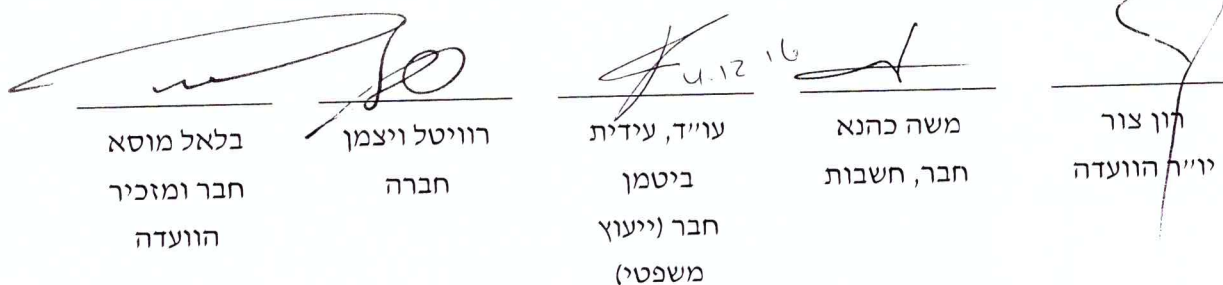 4.12.16
רון צור
יו״ר הוועדה
משה כהנא
חבר, חשבות
עו״ד, עידית
ביטמן
חבר (ייעוץ
משפטי)
רוויטל ויצמן
חברה
בלאל מוסא
חבר ומזכיר
הוועדה